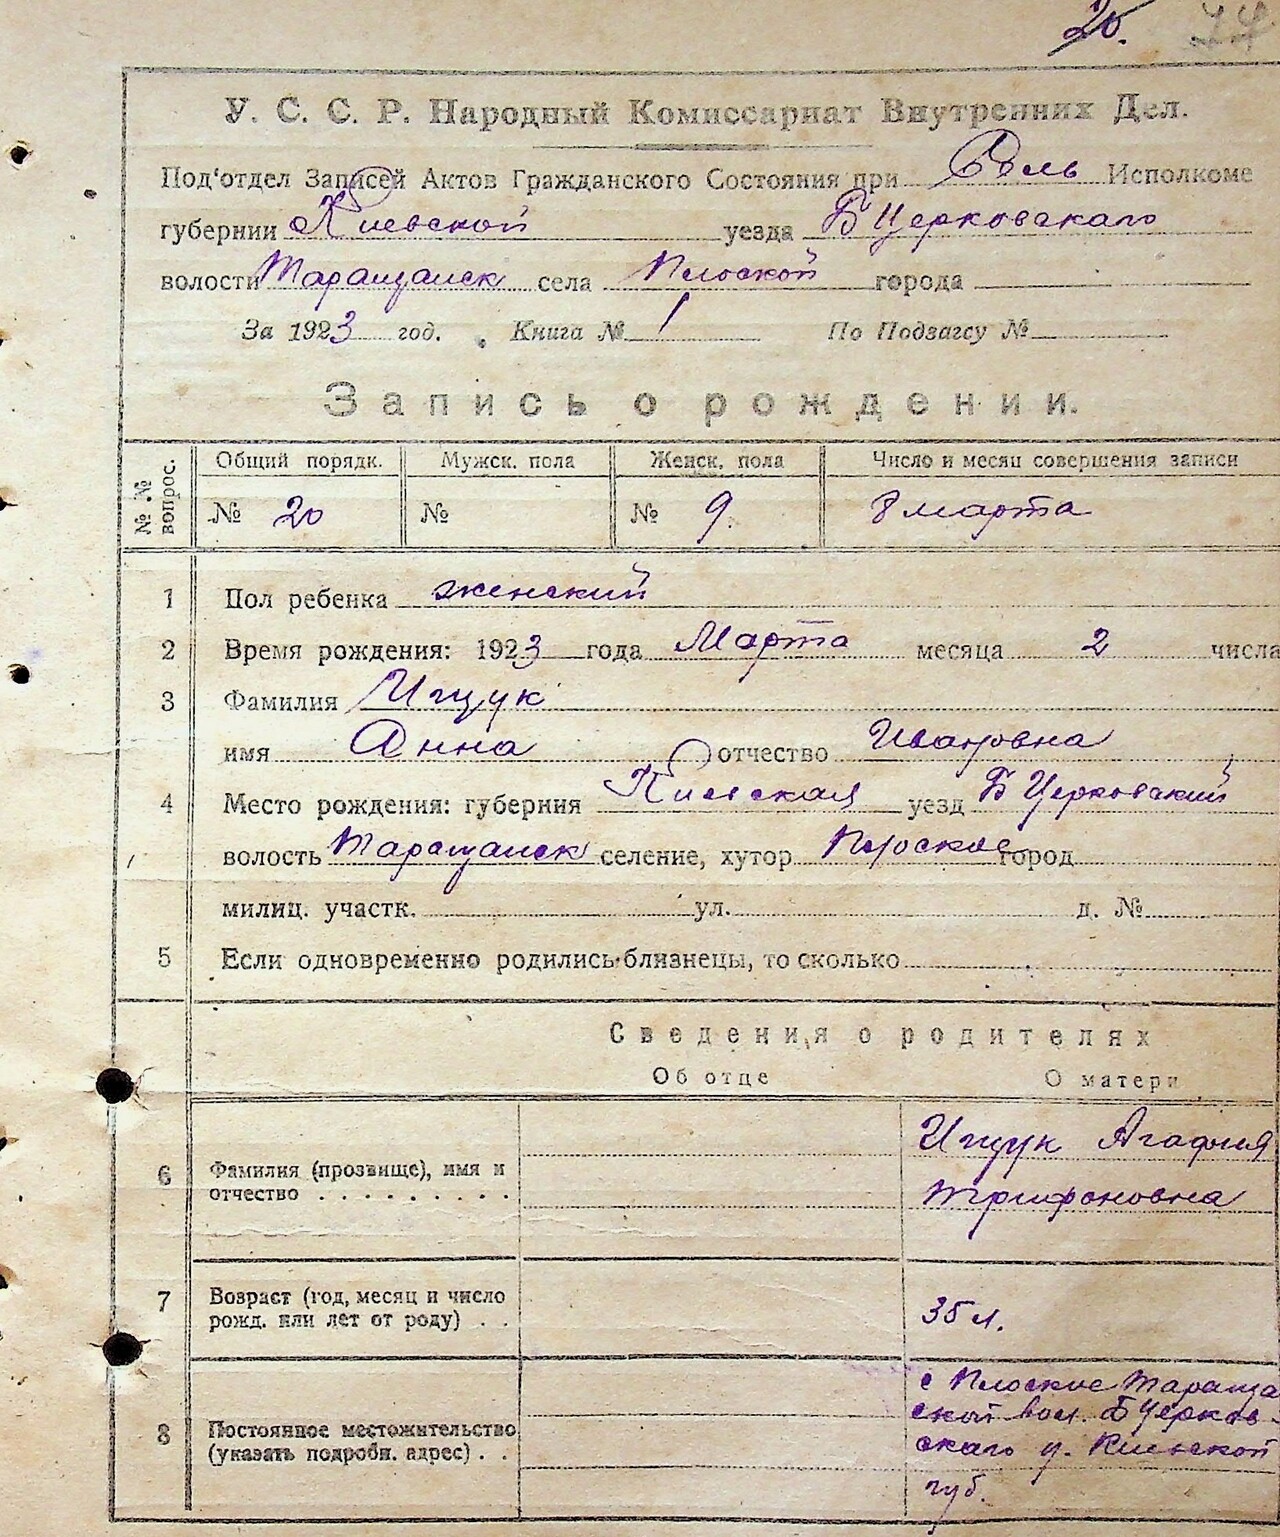 20.
77
У. С. С. Р. Народный Комиссариат Внутренних Дел.
Под‘отдел Записей Актов Гражданского Состояния при Сель Исполкоме
губернии Киевской уезда Б Церковскаго
волости Таращанск села Плоской города
За 1923 год. Книга № 1 По Подзагсу №
Запись о рождении.
№ № вопрос.
Общий порядк. Мужск. пола Женск. пола Число и месяц совершения записи
№ 20 № № 9. 8 марта
1 Пол ребенка женский
2 Время рождения: 1923 года Марта месяца 2 числа
3 Фамилия Ищук
имя Анна отчество Ивановна
4 Место рождения: губерния Киевская уезд Б Церковский
волость Таращанск селение, хутор Плоское город
милиц. участк. ул. д. №
5 Если одновременно родились близнецы, то сколько
Сведения о родителях
Об отце О матери
6 Фамилия (прозвище), имя и отчество . . . . . . . . . Ищук Агафия
Трифоновна
7 Возраст (год, месяц и число рожд. или лет от роду) . . 35 л.
8 Постоянное местожительство (указать подробн. адрес) . . с Плоское Тараща
ской вол. Б Церков-
скаго у. Киевской
губ.